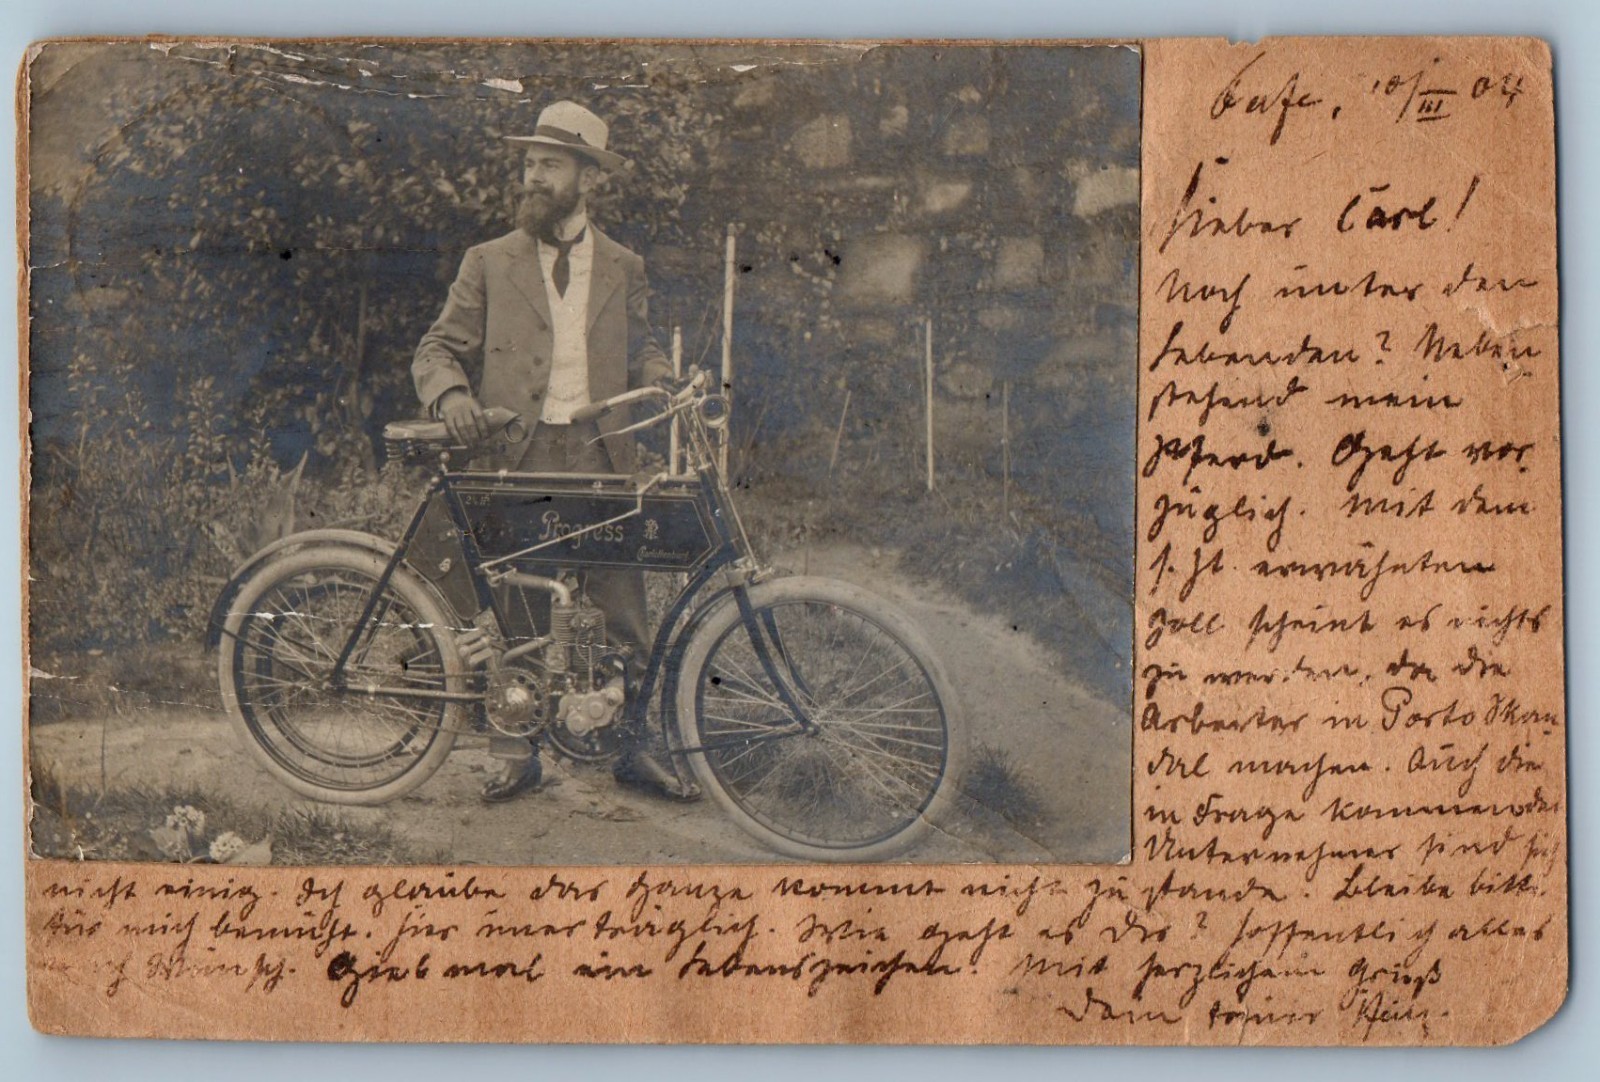 10/III 04
Lieber Carl!
Noch unter den
Lebenden? Neben
stehend mein
Pferd. Geht vor
züglich. Mit dem
s. Zt. erwähnten
Zoll scheint es nichts
zu werden, da die
Arbeiter in Porto Skan
dal machen. Auch die
in Frage kommenden
Unternehmer sind sich
nicht einig. Ich glaube das Ganze kommt nicht zu stande. Bleibe bitte
für mich bemüht. Hier unerträglich. Wie geht es Dir? Hoffentlich alles
nach Wunsch. Gieb mal ein Lebenszeichen. Mit herzlichem Gruß
Dein
Progress
Charlottenburg